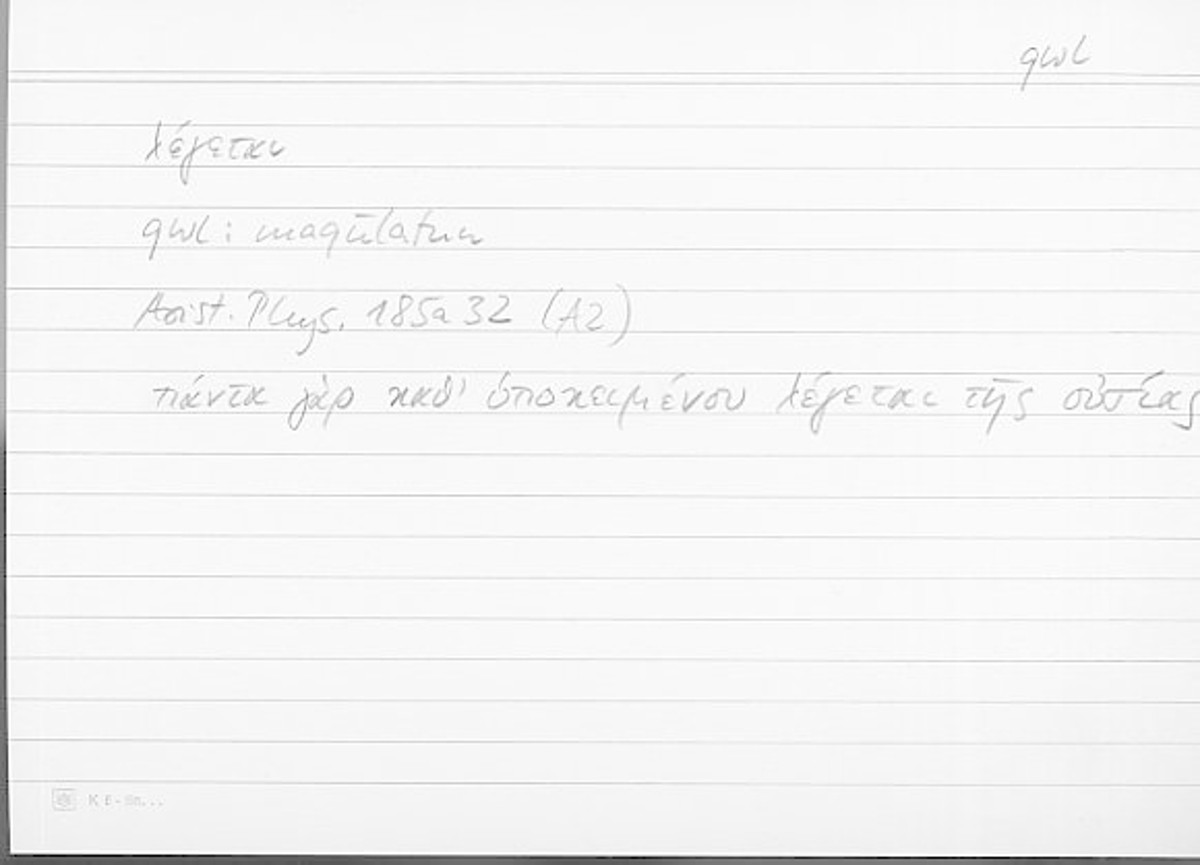 qwl
λέγεται
qwl : maqūlatun
Arist. Phys. 185a 32 (A2)
πάντα γὰρ καθ' ὑποκειμένου λέγεται τῆς οὐσίας